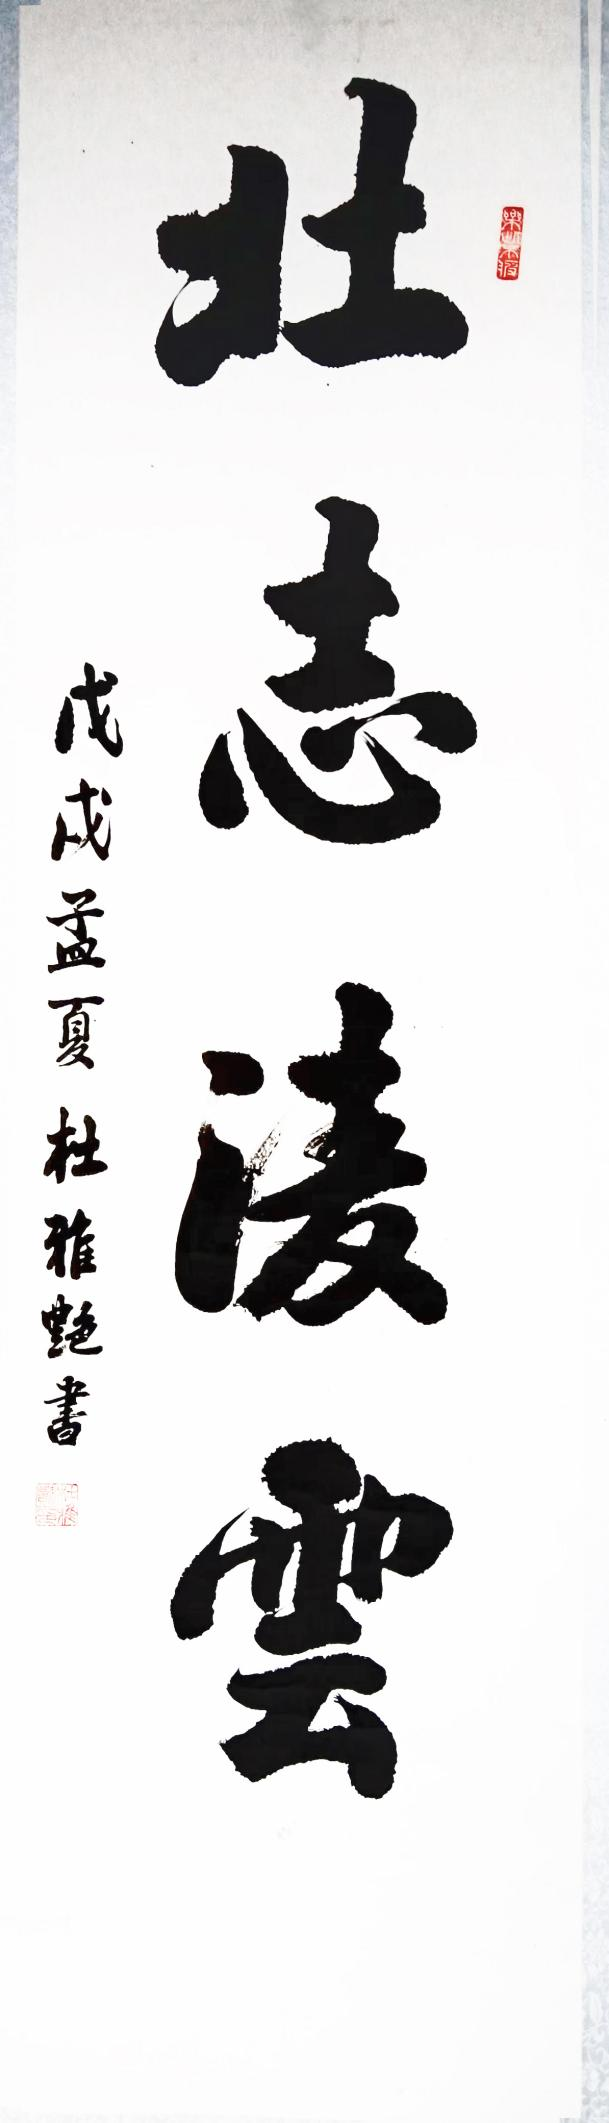 壮志凌雲
戊戌孟夏杜雅艶書